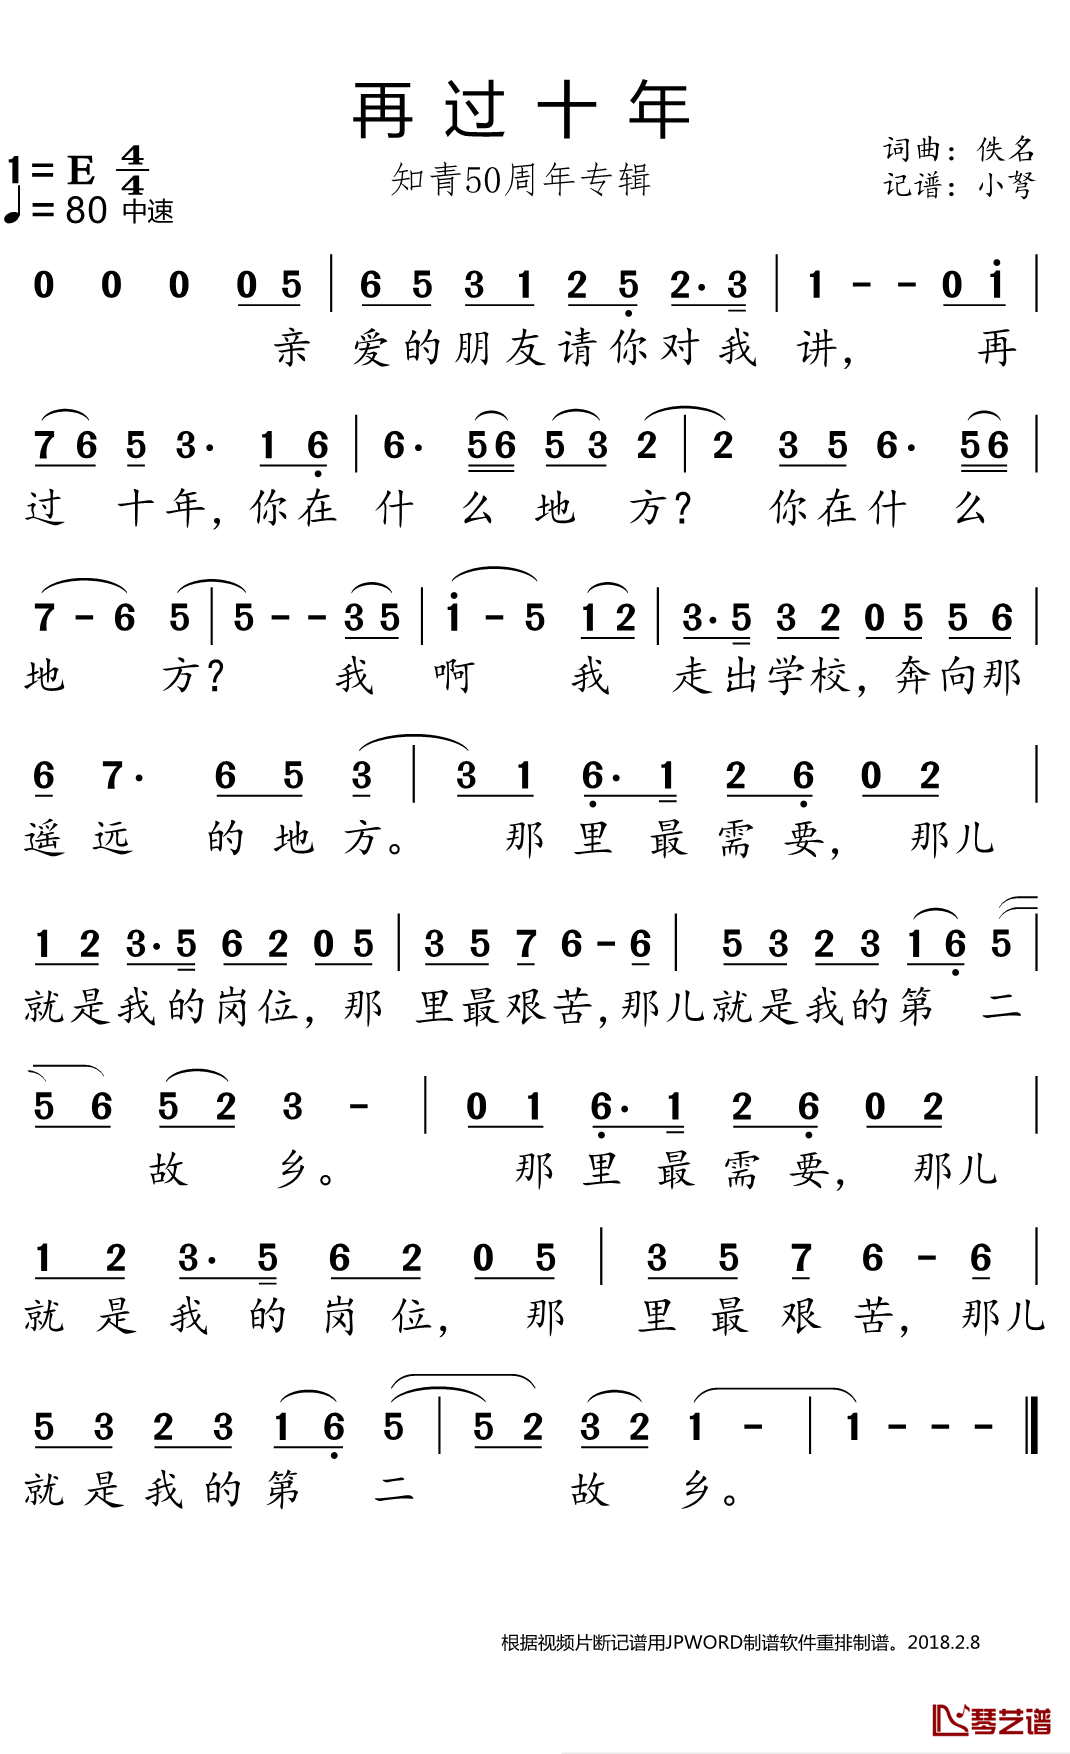 再过十年
知青50周年专辑
词曲：佚名
记谱：小弩
1=E 4/4
♩=80 中速
0 0 0 0 5 | 6 5 3 1 2 5̣ 2· 3 | 1 - - 0 i |
亲 爱的朋友请你对我 讲， 再
7 6 5 3· 1 6̣ | 6· 5 6 5 3 2 | 2 3 5 6· 5 6 |
过 十年，你在 什么地 方？ 你在什么
7 - 6 5 | 5 - - 3 5 | i - 5 1 2 | 3· 5 3 2 0 5 5 6 |
地 方？ 我 啊 我 走出学校，奔向那
6 7· 6 5 3 | 3 1 6̣· 1 2 6̣ 0 2 |
遥远 的地方。 那里最需要， 那儿
1 2 3· 5 6 2 0 5 | 3 5 7 6 - 6 | 5 3 2 3 1 6̣ 5 |
就是我的岗位，那 里最艰苦，那儿就是我的第 二
5 6 5 2 3 - | 0 1 6̣· 1 2 6̣ 0 2 |
故 乡。 那里最需要， 那儿
1 2 3· 5 6 2 0 5 | 3 5 7 6 - 6 |
就是我的岗位， 那 里最艰苦，那儿
5 3 2 3 1 6̣ 5 | 5 2 3 2 1 - | 1 - - - ‖
就是我的第 二 故 乡。
根据视频片断记谱用JPWORD制谱软件重排制谱。2018.2.8
琴艺谱